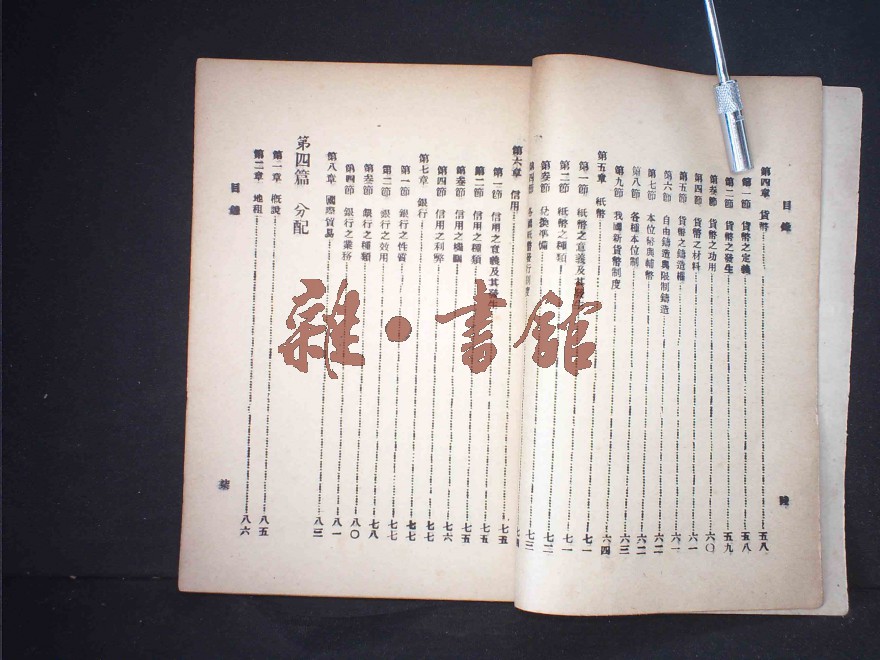 目錄
第四章 貨幣 五八
第一節 貨幣之定義 五八
第二節 貨幣之發生 五九
第叁節 貨幣之功用 六〇
第四節 貨幣之材料 六一
第五節 貨幣之鑄造權 六一
第六節 自由鑄造與限制鑄造 六二
第七節 本位幣與輔幣 六二
第八節 各種本位制 六二
第九節 我國新貨幣制度 六三
第五章 紙幣 六四
第一節 紙幣之意義及其發生 七一
第二節 紙幣之種類 七一
第叁節 兌換準備 七二
第四節 各國紙幣發行制度 七三
陸
第六章 信用
第一節 信用之意義及其發生 七五
第二節 信用之種類 七五
第叁節 信用之機關 七五
第四節 信用之利弊 七六
第七章 銀行 七七
第一節 銀行之性質 七七
第二節 銀行之效用 七七
第叁節 銀行之種類 七八
第四節 銀行之業務 八〇
第八章 國際貿易 八一
八三
第四篇 分配
第一章 概說 八五
第二章 地租 八六
目錄
柒
雜·書館